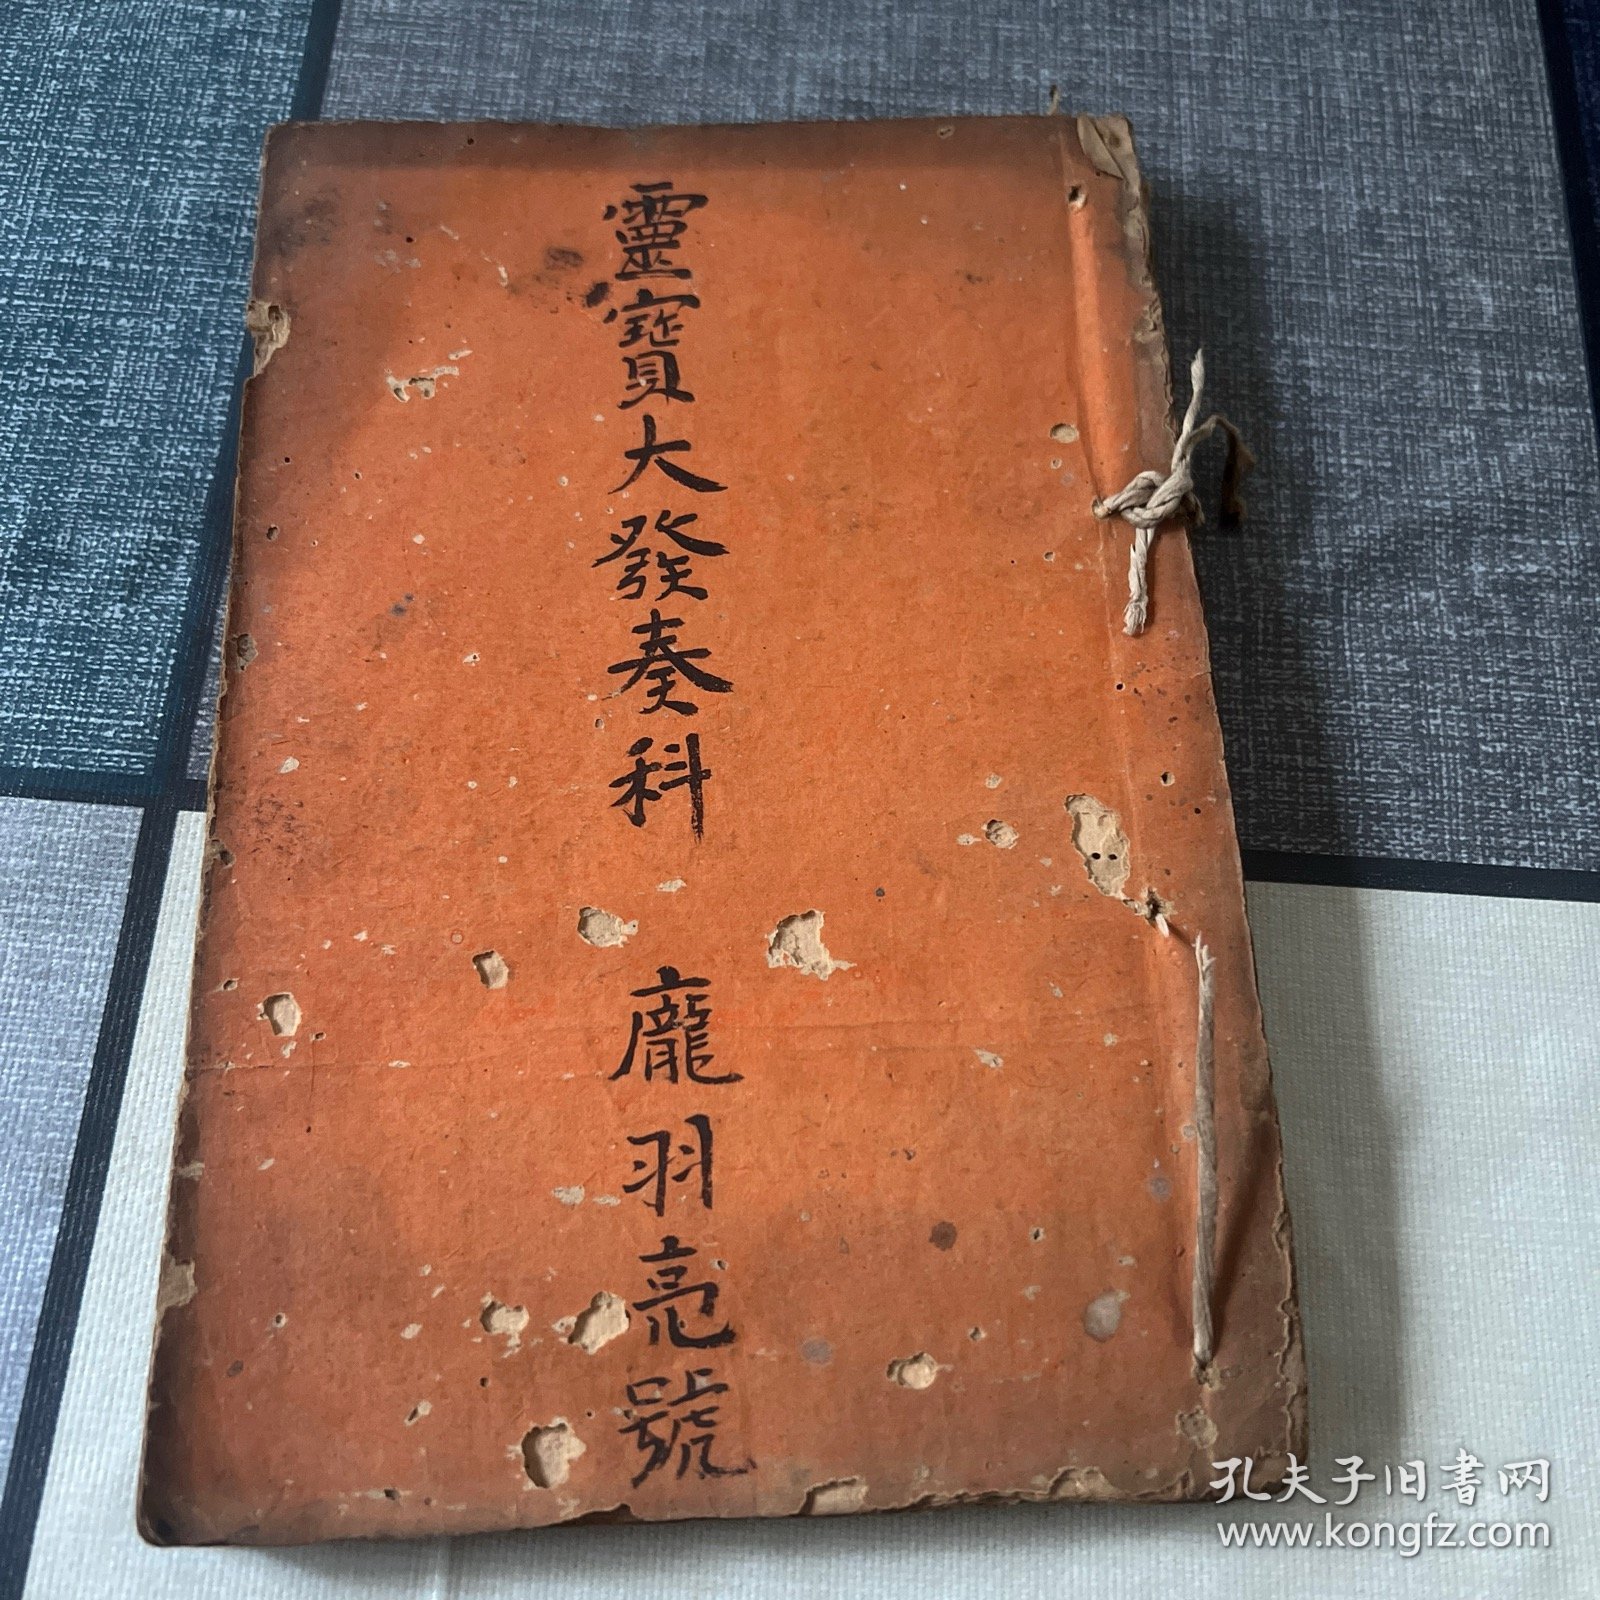 靈寶大發奏科
龐羽亮號
孔夫子旧書网
www.kongfz.com